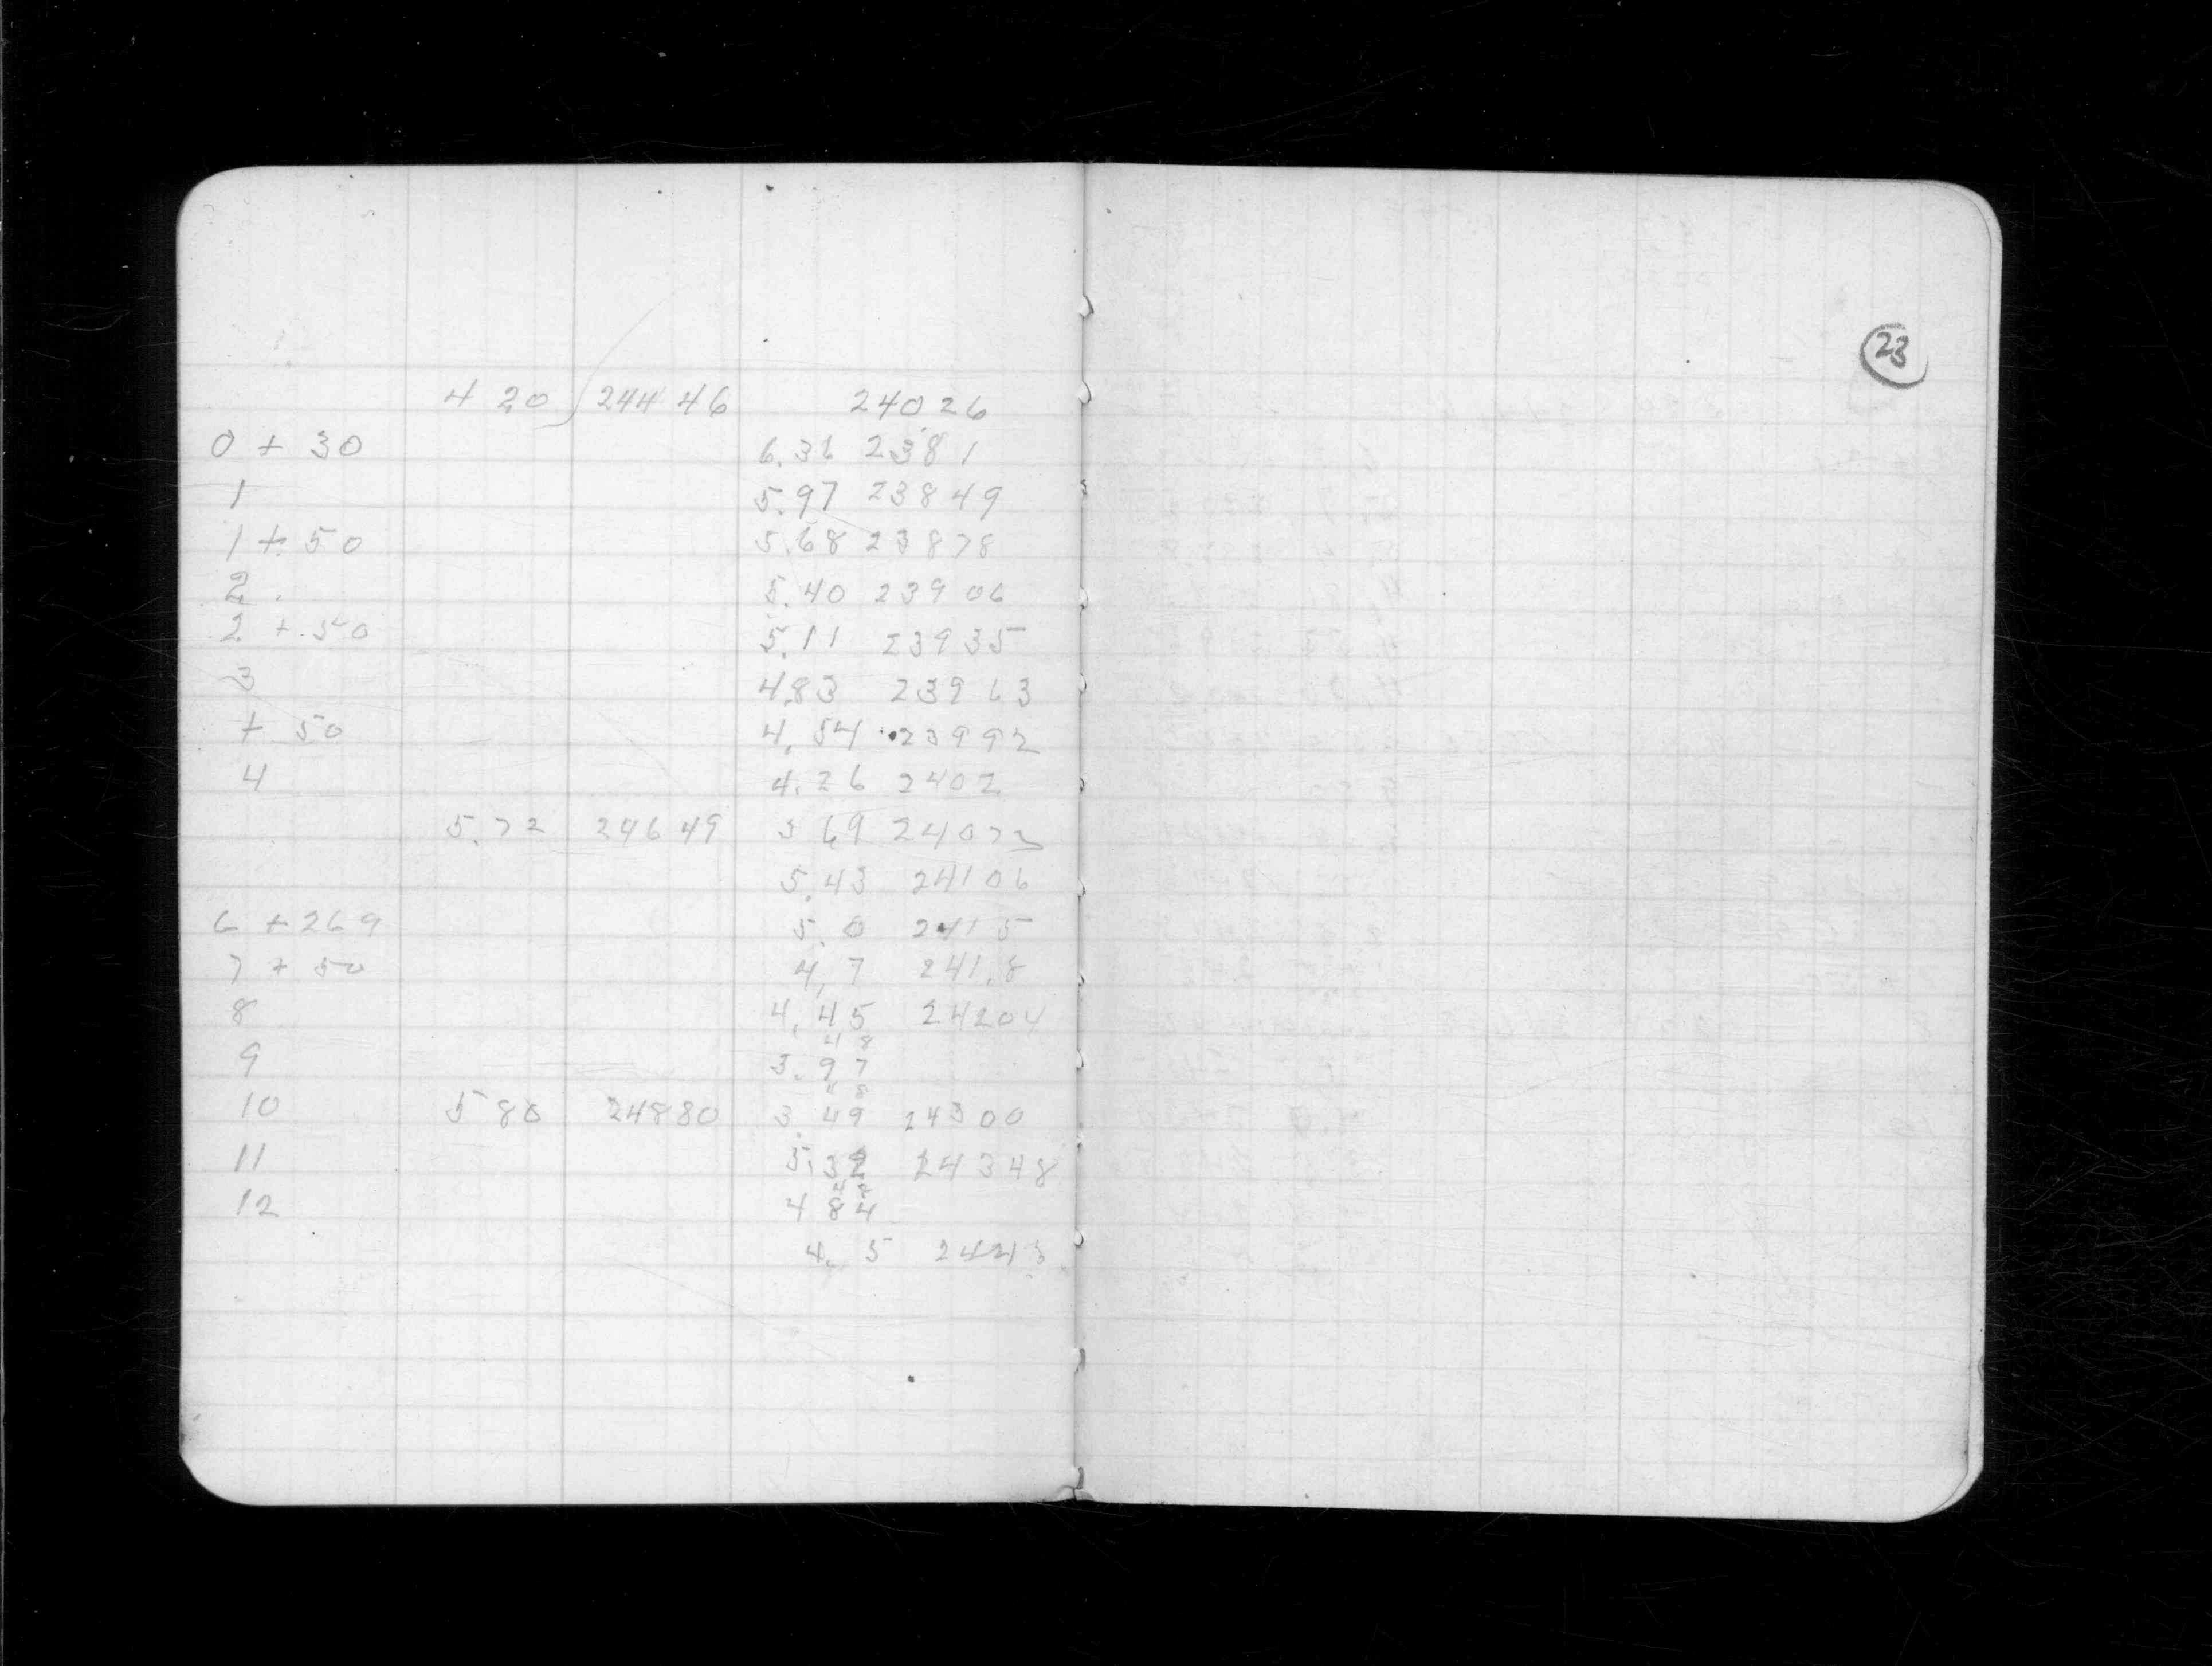 23
4 20 244 46 24026
0 + 30 6.36 2381
1 5.97 23849
1 + 50 5.68 23878
2. 5.40 23906
2 + 50 5.11 23935
3 4.83 23963
+ 50 4.54 23992
4 4.26 2402
5.72 24649 3 69
5.43 24106
6 + 269 5.0 2415
7 + 50 4.7 241.8
8 4.45 24204
48
9 3.97
48
10 5 80 24880 3.49 24300
11 5.32 24348
48
12 4 84
4.5